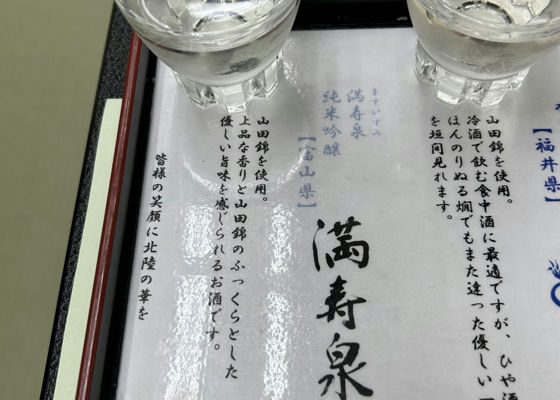 【福井県】
山田錦を使用。
冷酒で飲む食中酒に最適ですが、ひや酒
ほんのりぬる燗でもまた違った優しい一
を垣間見れます。
ますいずみ
満寿泉
純米吟醸
【富山県】
満寿泉
山田錦を使用。
上品な香りと山田錦のふっくらとした
優しい旨味を感じられるお酒です。
皆様の笑顔に北陸の華を